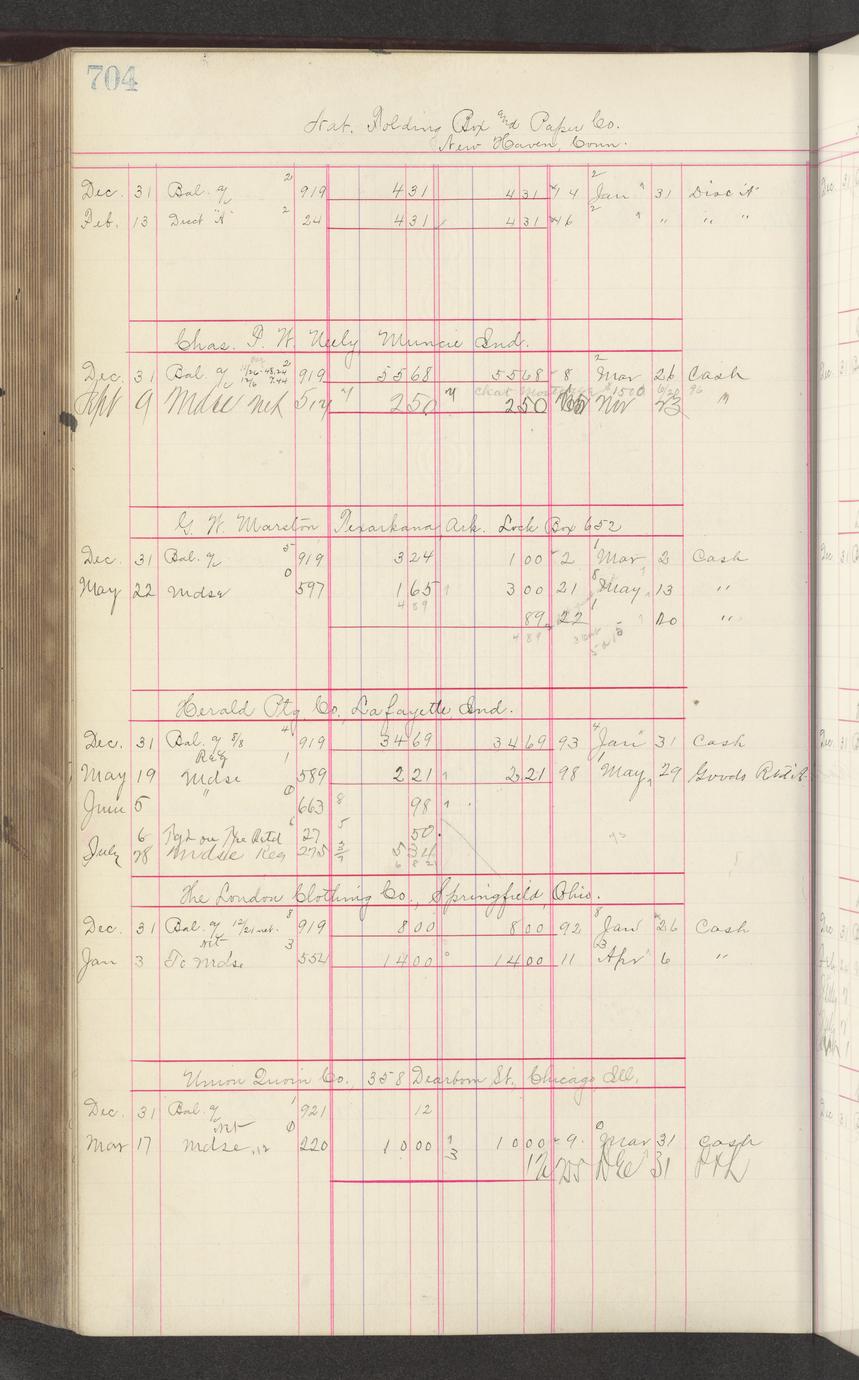 704
Nat. Folding Box and Paper Co.
New Haven, Conn.
Dec. 31 Bal. 2 919 4 31 4 31 14 2 Jan 31 Disc't
Feb. 13 2 24 4 31 4 31 46 2 " " " "
Chas. P. W. Neely, Muncie Ind.
Dec. 31 Bal. 11/26 - 48.24 2 919 55 68 55 68 8 2 Mar 26 Cash
12/6 7.44
Sept 9 Mdse net 2 50 2 50 Nov 23 "
G. W. Marston Texarkana, Ark. Lock Box 652
Dec. 31 Bal. 5 919 3 24 1 00 2 1 Mar 2 Cash
May 22 Mdse 0 597 1 65 3 00 21 8 May 13 "
4 89 89 22 1 20 "
4 89
Herald Ptg Co., Lafayette, Ind.
Dec. 31 Bal. 8/8 4 919 34 69 34 69 93 4 Jan 31 Cash
Reg
May 19 Mdse 1 589 2 21 2 21 98 1 May 29 Goods Ret'd
June 5 " 0 663 8 98
6 6 27 5 50
July 28 Mdse Reg 275 5 34
6 82
The London Clothing Co., Springfield, Ohio.
Dec. 31 Bal. 12/21 net. 8 919 8 00 8 00 92 8 Jan 26 Cash
net
Jan 3 To Mdse 3 554 14 00 14 00 11 3 Apr 6 "
Union Quoin Co., 358 Dearborn St. Chicago Ill.
Dec. 31 Bal. 1 921 12
net
Mar 17 Mdse .12 0 220 10 00 1 3 10 00 9 0 Mar 31 Cash
12 Dec 31 P&L